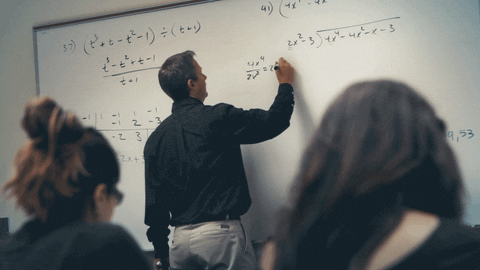 37) (t³+t-t²-1) ÷ (t+1)
t³-t²+t-1
t+1
-1 | 1 -1 1 -1
-1 2 -3
-2 3
41) (4x⁴-4x²
2x²-3 ) 4x⁴-4x²-x-3
4x⁴
2x² = 2x
9, 53